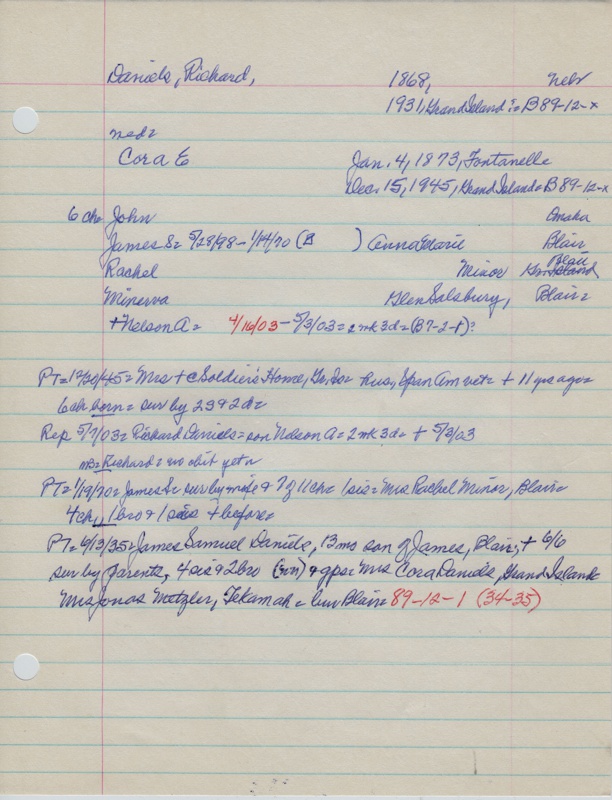 Daniels, Richard, 1868, Nebr
1931, Grand Island?= B89-12-x
med=
Cora E Jan. 4, 1873, Fontanelle
Dec. 15, 1945, Grand Island= B 89-12-x
6 ch= John Omaha
James S= 5/28/98-1/14/70 (B ) Anna Marie Blair
Rachel Minor Blair
Minerva Glen Salsbury, Blair=
+Nelson A= 4/16/03-5/3/03= 2 mk 3d= (B7-2-8)?
PT=12/20/45= Mrs + @ Soldier's Home, Gr. Is= hus, Span Am vet= + 11 yrs ago=
6 ch born= sur by 2s & 2d=
Rep 5/7/03= Richard Daniels= son Nelson A= 2 mk 3d= + 5/3/03
MB= Richard= no obit yet=
PT=1/19/70= James S= sur by wife & 7 of 11 ch= 1 sis= Mrs Rachel Minor, Blair=
4 ch, 1 bro & 1 sis + before=
PT=6/13/35= James Samuel Daniels, 13 mo son of James, Blair, + 6/6
sur by parents, 4 sis & 2 bro & gps= Mrs Cora Daniels, Grand Island &
Mrs Jonas Metzler, Tekamah= bur Blair= 89-12-1 (34-35)